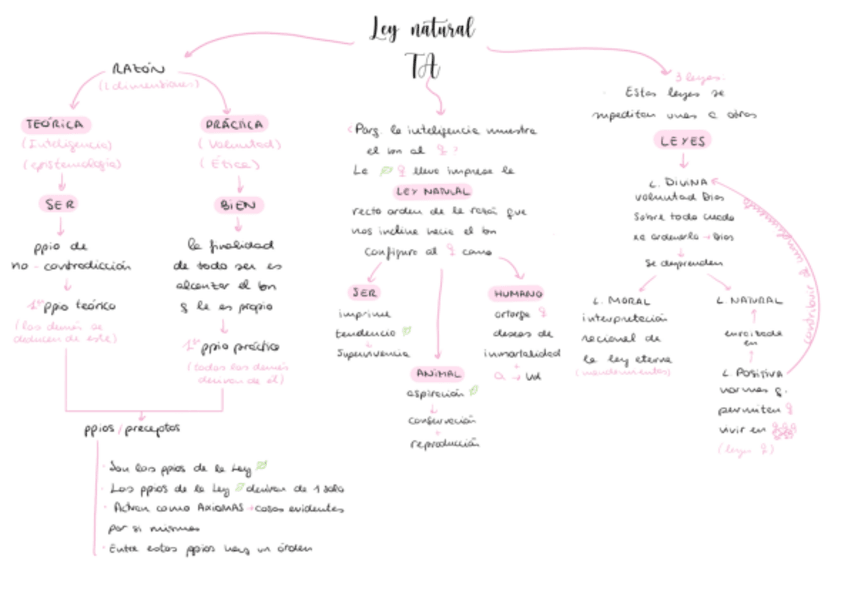 Ley natural
TA
RAZÓN
(2 dimensiones)
TEÓRICA
(Inteligencia)
(epistemología)
SER
ppio de
no-contradicción
1er ppio teórico
(los demás se
deducen de este)
PRÁCTICA
(Voluntad)
(Ética)
BIEN
la finalidad
de todo ser es
alcanzar el bn
q le es propio
1er ppio práctico
(todos los demás
derivan de él)
ppios/preceptos
· Son los ppios de la Ley
· Los ppios de la Ley derivan de 1 solo
· Actúan como AXIOMAS → cosas evidentes
por sí mismas
· Entre estos ppios hay un órden
¿Porq. la inteligencia muestra
el bn al ?
La lleva impresa la
LEY NATURAL
recto orden de la razón que
nos inclina hacia el bn
Configura al como
SER
imprime
tendencia
Supervivencia
ANIMAL
aspiración
conservación
reproducción
HUMANO
otorga
deseos de
inmortalidad
3 leyes.
Estas leyes se
supeditan unas a otras
LEYES
L. DIVINA
voluntad Dios
Sobre todo cuando
ordenarlo → Dios
Se desprenden
L. MORAL
interpretación
racional de
la ley eterna
(mandamientos)
L. NATURAL
enraizada
en
L. POSITIVA
normas q.
permiten
vivir en
(leyes )
contribuir al